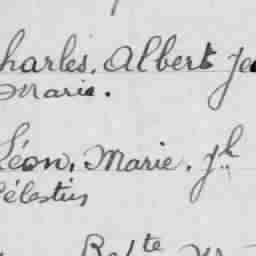 Charles, Albert Je
Marie.
Léon, Marie, Jh
Célestin
Bte